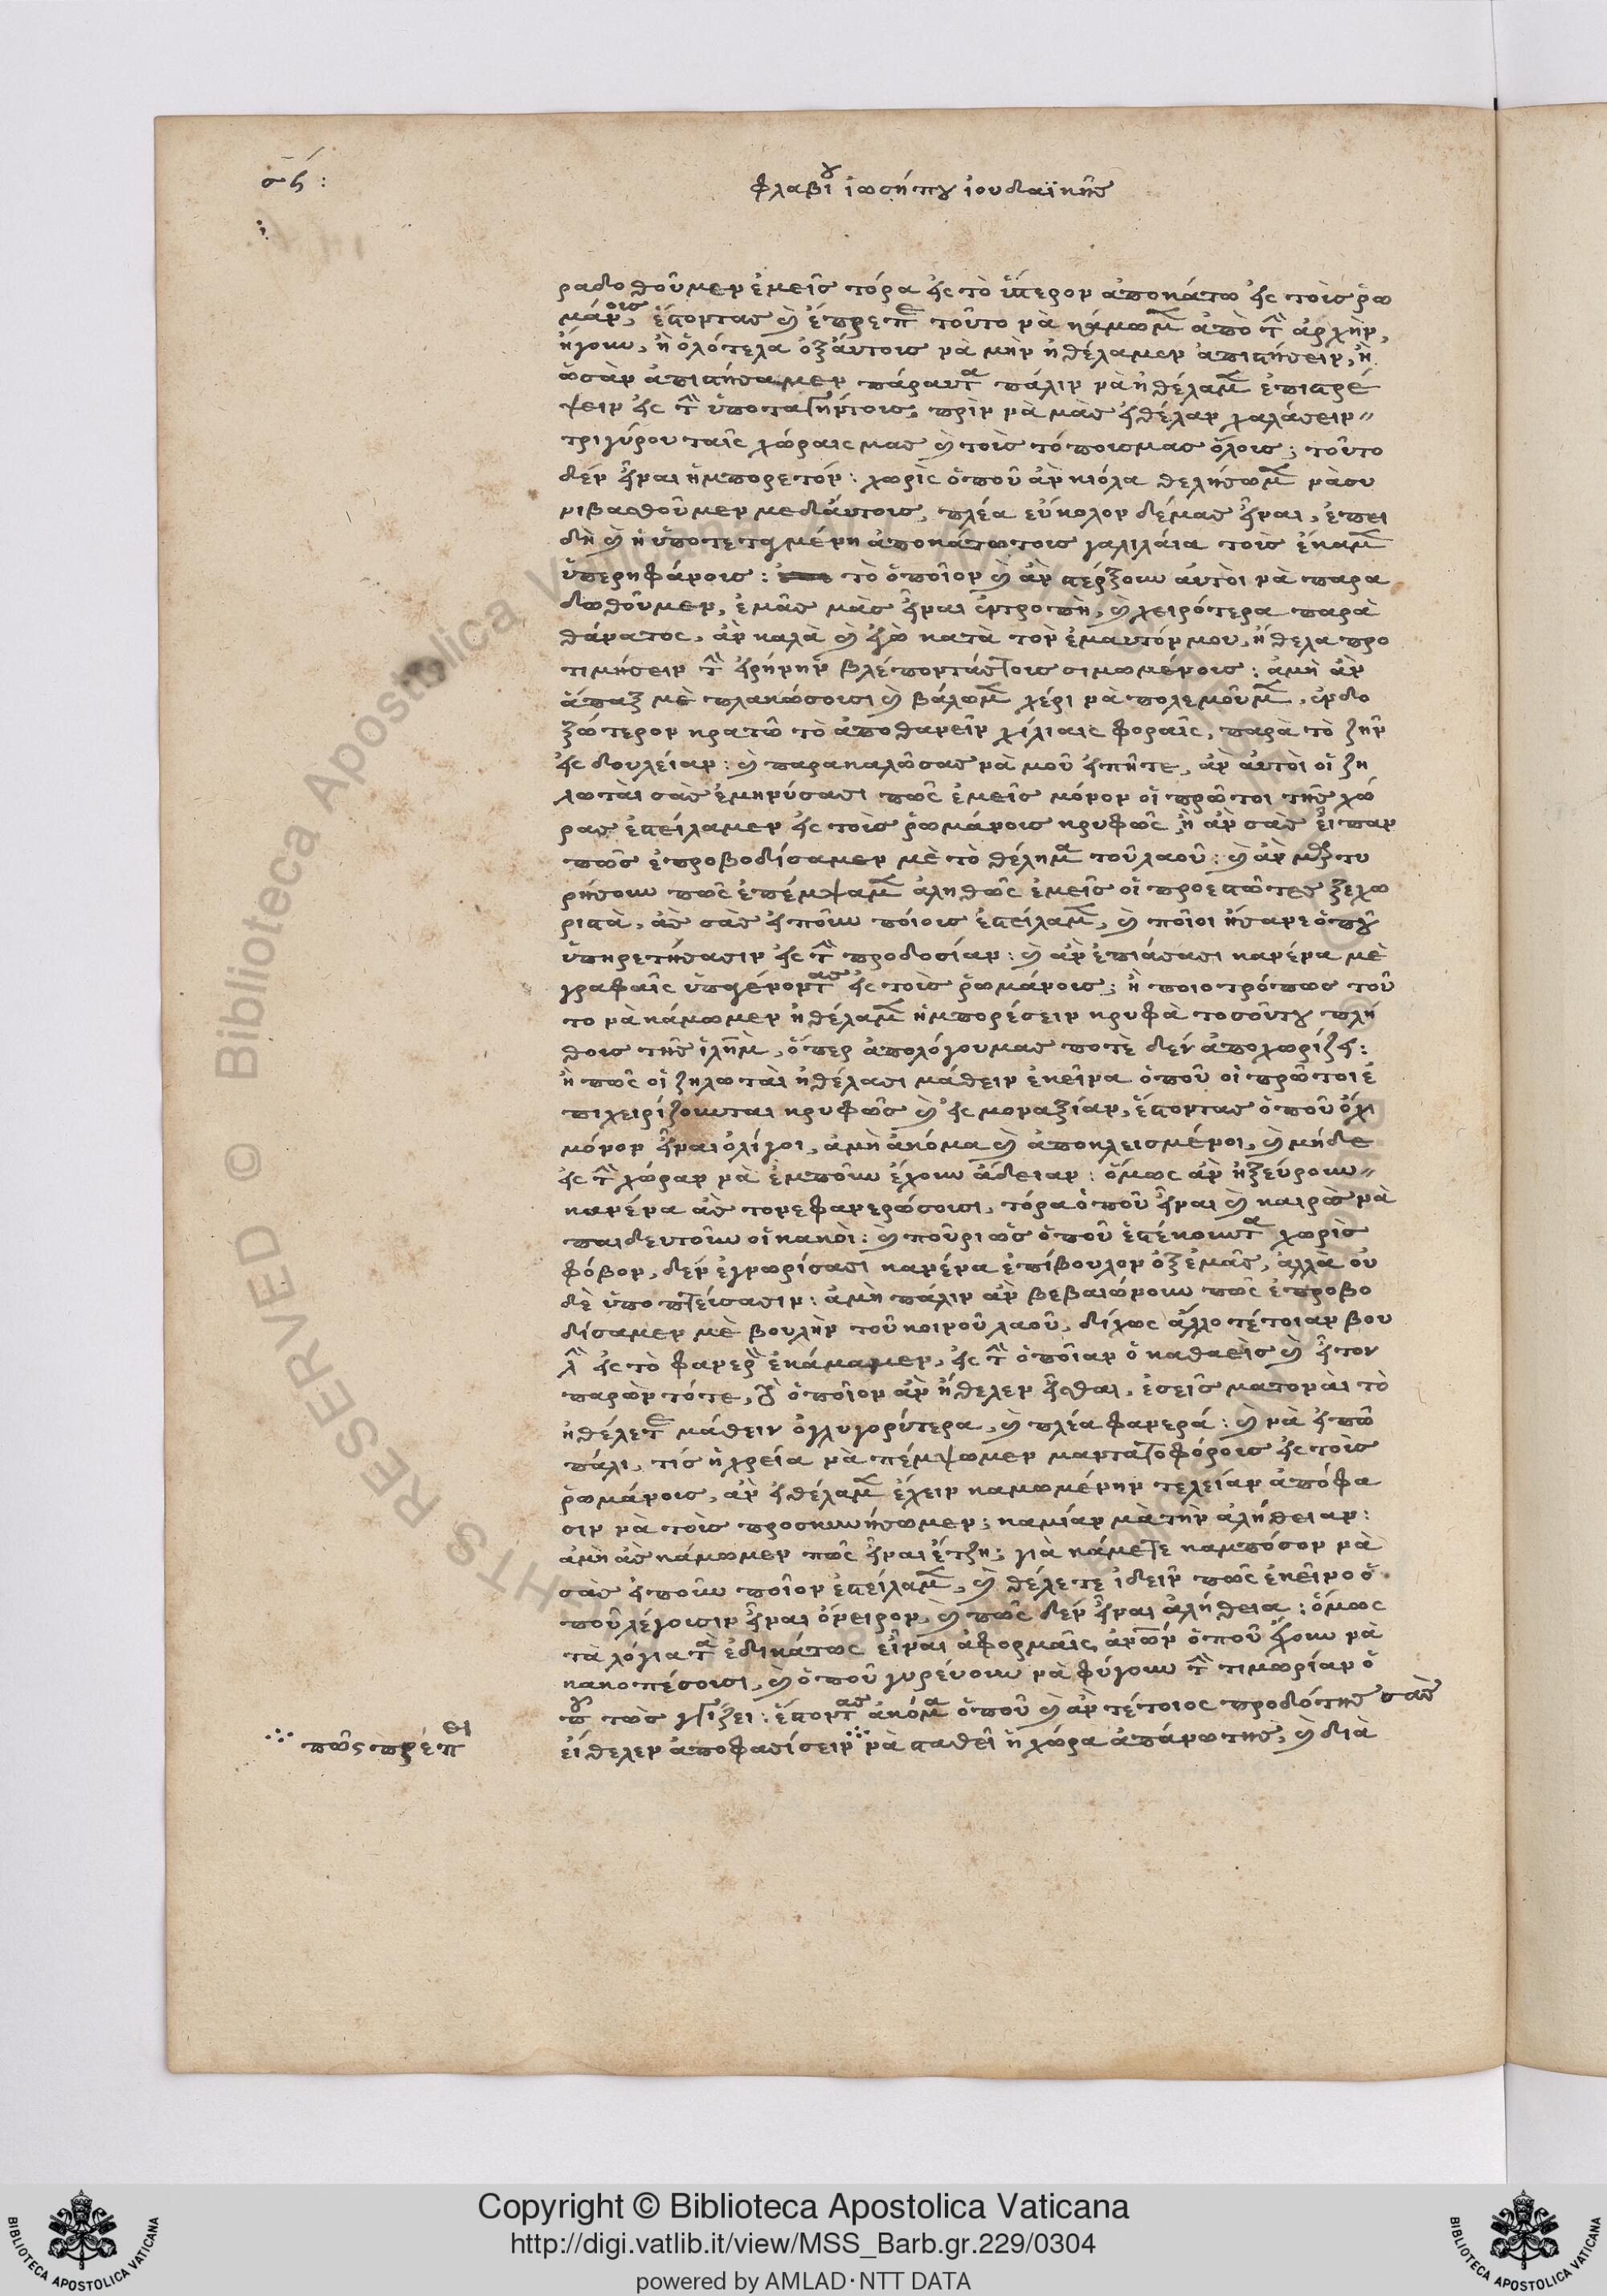 φλαβίου ἰωσήπου ἰουδαϊκῆς
ραδοθοῦμεν ἐμεῖς τόρα εἰς τὸ ὕστερον ἀποκάτω εἰς τοὶς ῥω
μάνοις, ἔστοντας καὶ ἔπρεπε τοῦτο νὰ κάμωμεν ἀπὸ τὴν ἀρχὴν,
ἤγουν, ἢ ὁλότελα ὀξάυτοις νὰ μὴν ἠθέλαμεν ἀπιστήσειν, ἢ
ὡσὰν ἀπιστήσαμεν πάραυτα πάλιν νὰ ἠθέλαμεν ἐπιστρέ
ψειν εἰς τὴν ὑποταγήντοις, πρὶν νὰ μὰς εἰθέλαν χαλάσειν
τριγύρου ταῖς χώραις μας καὶ τοὶς τόποισμας ὅλοις; τοῦτο
δέν εἶναι ἠμπορετόν: χωρὶς ὁποῦ ἀν κιόλα θελήσωμεν νὰσυ
νιβασθοῦμεν μεδάυτοις, πλέα εὔκολον δέμας εἶναι, ἐπει
δὴ καὶ ἡ ὑποτεταγμένη ἀποκάτωτοις γαλιλάια τοὶς ἐκαμεν
ὑπερηφάνοις: τὸ ὁποῖον καὶ ἀν στέρξουν ἀυτὸι νὰ παρα
δωθοῦμεν, ἐμᾶς μὰς εἶναι ἐντροπὴ, καὶ χειρότερα παρὰ
θάνατος, ἀν καλὰ καὶ ἐγὼ κατὰ τὸν ἐμαυτόν μου, ἤθελα προ
τιμήσειν τὴν εἰρήνην βλέποντάςτοις σιμωμένοις: ἀμὴ ἀν
ἅπαξ μὲ πλακώσουσι καὶ βάλωμεν χέρι νὰ πολεμοῦμεν, ἐνδο
ξώτερον κρατῶ τὸ ἀποθανεῖν χίλιαις φοραῖς, παρὰ τὸ ζῆν
εἰς δουλείαν: καὶ παρακαλῶσας νὰ μοῦ εἰπῆτε, ἀν ἀυτὸι οἱ ζη
λωτὰι σὰς ἐμηνύσασι πῶς ἐμεῖς μόνον οἱ πρῶτοι τῆς χώ
ρας ἐστείλαμεν εἰς τοὶς ῥωμάνοις κρυφῶς, ἢ ἀν σὰς εἶπαν
πῶς ἐπροβοδίσαμεν μὲ τὸ θέλημα τοῦ λαοῦ: καὶ ἀν μαρτυ
ρήσουν πῶς ἐπέμψαμεν ἀληθῶς ἐμεῖς οἱ προεστῶτες ξεχω
ριστὰ, ἀς σὰς εἰποῦν πόιοις ἐστείλαμεν, καὶ ποῖοι ἤσανε ὁποῦ
ὑπηρετήσασιν εἰς τὴν προδοσίαν: καὶ ἀν ἐπιάσασι κανένα μὲ
γραφαῖς ὑπαγένοντας εἰς τοὶς ῥωμάνοις; ἢ ποιοτρόπως τοῦ
το νὰ κάμωμεν ἠθέλαμεν ἠμπορέσειν κρυφὰ τοσοῦτου πλή
θοις τῆς ἱλὴμ, ὅπερ ἀπολόγουμας ποτὲ δέν ἀποχωρίζει:
ἢ πῶς οἱ ζηλωτὰι ἠθέλασι μάθειν ἐκεῖνα ὁποῦ οἱ πρῶτοι ἐ
πιχειρίζουνται κρυφῶς καὶ εἰς μοναξίαν, ἔστοντας ὁποῦ ὄχι
μόνον εἶναι ὀλίγοι, ἀμὴ ἀκόμα καὶ ἀποκλεισμένοι, καὶ μήδε
εἰς τὴν χώραν νὰ ἐμποῦν ἔχουν ἄδειαν: ὅμως ἀν ἠξεύρουν
κανένα ἀς τονεφανερώσουσι, τόρα ὁποῦ εἶναι καὶ καιρὸς νὰ
παιδευτοῦν οἱ κακὸι: καὶ πούρι ὡς ὁποῦ ἐστέκουντα χωρὶς
φόβον, δέν ἐγνωρίσασι κανένα ἐπίβουλον ὀξ ἐμᾶς, ἀλλὰ οὐ
δὲ ὑποπτείσασιν: ἀμὴ πάλιν ἀν βεβαιώνουν πῶς ἐπροβο
δίσαμεν μὲ βουλὴν τοῦ κοινοῦ λαοῦ, δίχως ἄλλο τέτοιαν βου
λὴν εἰς τὸ φανερὸν ἐκάμαμεν, εἰς τὴν ὁποῖαν ὁ καθαεὶς καὶ εἶτον
παρὼν τότε, διὰ ὁποῖον ἀν ἤθελεν εἶσθαι, ἐσεῖς ματονάι τὸ
ἠθέλετε μάθειν ὀγλυγορύτερα, καὶ πλέα φανερά: καὶ νὰ εἰπῶ
πάλι, τίς ἡ χρεία νὰ πέμψωμεν μαντατοφόροις εἰς τοὶς
ῥωμάνοις, ἀν εἰθέλαμεν ἔχειν καμωμένην τελείαν ἀπόφα
σιν νὰ τοὶς προσκυνήσωμεν; καμίαν μὰ τὴν ἀλήθειαν:
ἀμὴ ἀς κάμωμεν πῶς εἶναι ἔτζη; γιὰ κάμετε καμπόσον νὰ
σὰς εἰποῦν ποῖον ἐστείλαμεν, καὶ θέλετε ἰδεῖν πῶς ἐκεῖνο ὁ
ποῦ λέγουσιν εἶναι ὄνειρον, καὶ πῶς δέν εἶναι ἀλήθεια: ὅμως
τὰ λόγια τὰ ἐδικάτως εἶναι ἀφορμαῖς ὁποῦ ἔχουν νὰ
κακοπέσουσι, καὶ ὁποῦ γυρεύουν νὰ φύγουν τὴν τιμωρίαν ὁ
ποῦ τὼς ἐγγίζει: ἔστοντας ἀκόμα ὁποῦ καὶ ἀν τέτοιος προδότης σὰς
εἴθελεν ἀποφασίσειν νὰ σταθεῖ ἡ χώρα ἀπάνωτης, καὶ διὰ
πῶς πρέπει
Copyright © Biblioteca Apostolica Vaticana
http://digi.vatlib.it/view/MSS_Barb.gr.229/0304
powered by AMLAD·NTT DATA
BIBLIOTECA APOSTOLICA VATICANA
BIBLIOTECA APOSTOLICA VATICANA